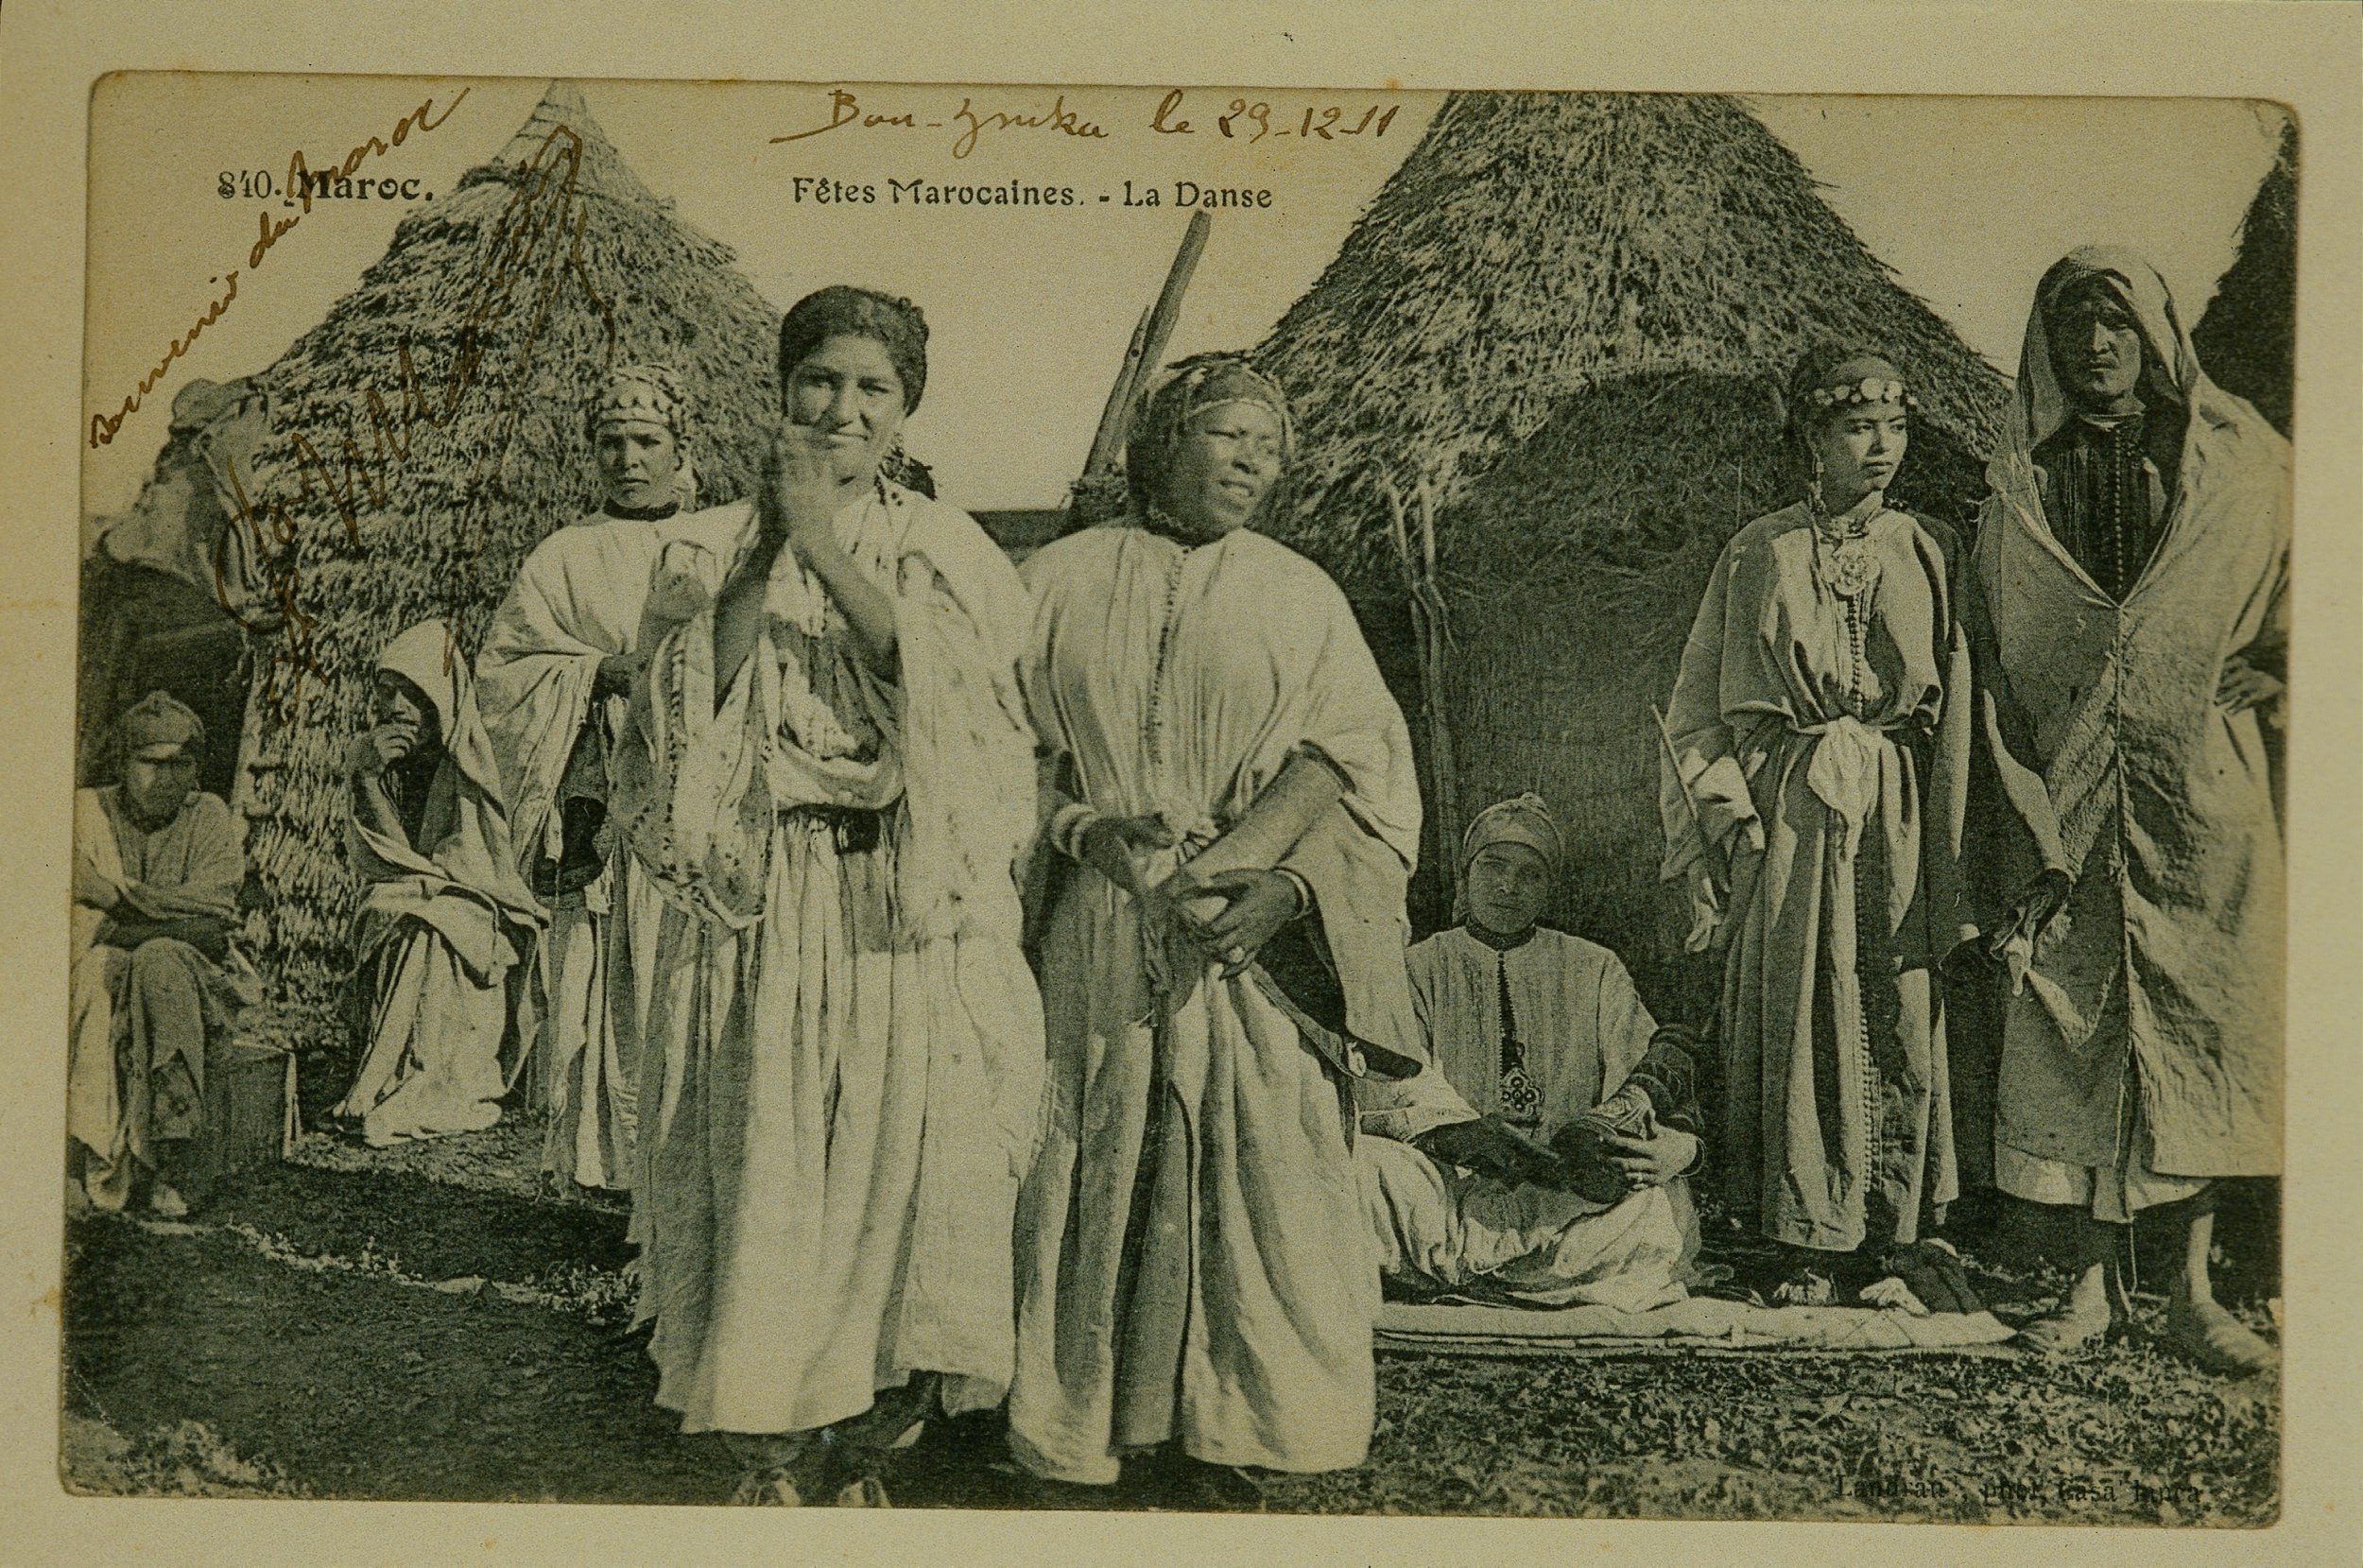 Bou-Znika le 29-12-11
810. Maroc.
Fêtes Marocaines. - La Danse
souvenir du Maroc
phot, Casablanca